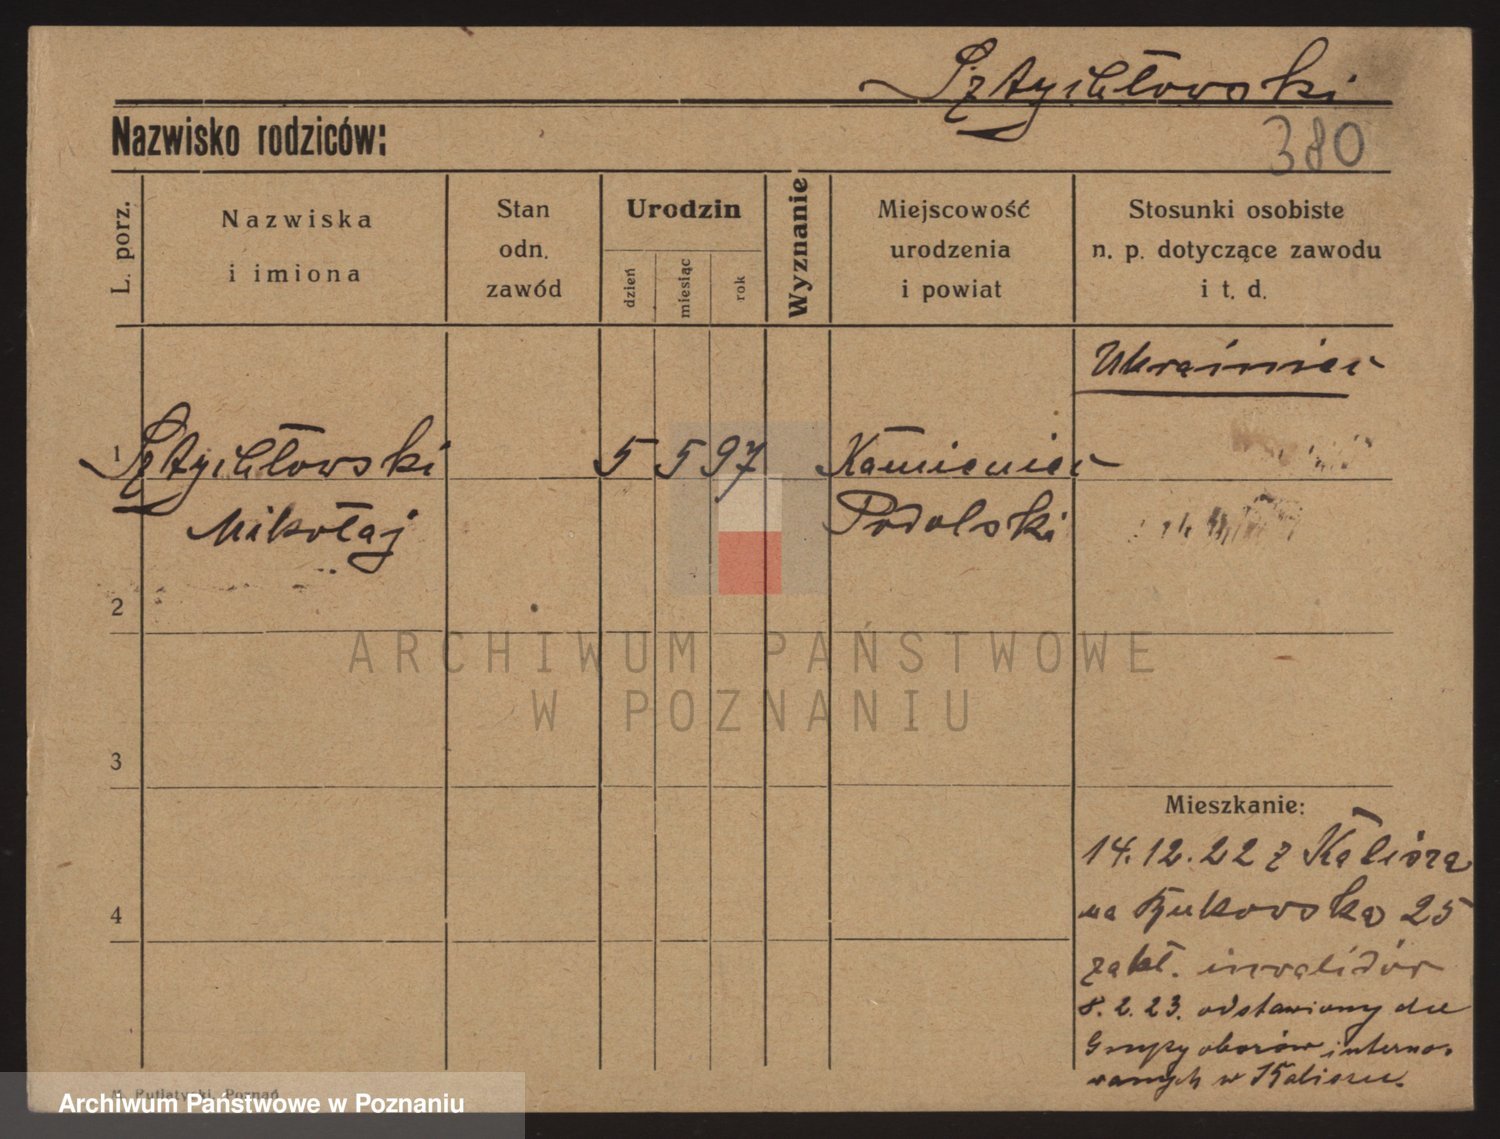 Sztychłowski
Nazwisko rodziców:
380
L. porz.
Nazwiska
i imiona
Stan
odn.
zawód
Urodzin
dzień
miesiąc
rok
Wyznanie
Miejscowość
urodzenia
i powiat
Stosunki osobiste
n. p. dotyczące zawodu
i t. d.
Ukrainiec
1 Sztychłowski 5 5 97 Kamieniec
Mikołaj Podolski
2
ARCHIWUM PAŃSTWOWE
W POZNANIU
3
Mieszkanie:
14.12.22 z Kalisza
4
na Bukowską 25
zakł. inwalidów
8.2.23. odstawiony do
Grupy obozów interno-
wanych w Kaliszu.
Putiatycki, Poznań
Archiwum Państwowe w Poznaniu